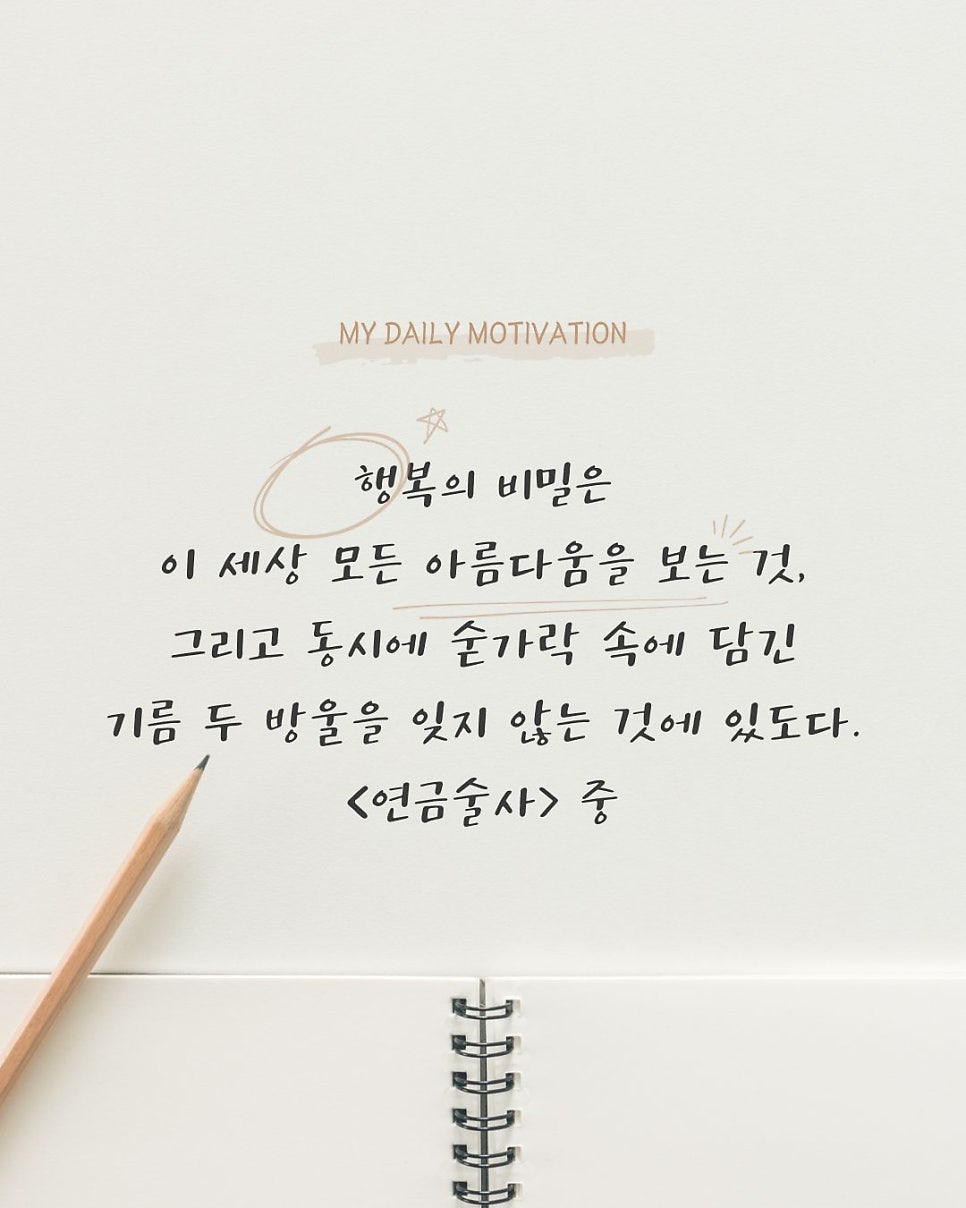 MY DAILY MOTIVATION
행복의 비밀은
이 세상 모든 아름다움을 보는 것,
그리고 동시에 숟가락 속에 담긴
기름 두 방울을 잊지 않는 것에 있도다.
<연금술사> 중